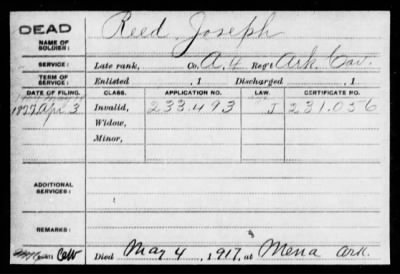 DEAD
NAME OF SOLDIER: Reed Joseph
SERVICE: Late rank, Co. A. 4 Reg't Ark Cav.
TERM OF SERVICE: Enlisted , 1 Discharged , 1
DATE OF FILING. CLASS. APPLICATION NO. LAW. CERTIFICATE NO.
1877 Apr 3 Invalid, 233.493 J 231.056
Widow,
Minor,
ADDITIONAL SERVICES:
REMARKS:
Died May 4, 1917, at Mena Ark.